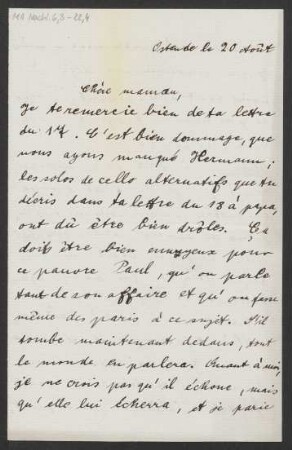 Ostende le 20 Août
Chère maman,
Je te remercie bien de ta lettre
du 17. C'est bien dommage, que
nous ayons manqué Hermann;
les solos de cello alternatifs que tu
décris dans ta lettre du 18 à papa,
ont dû être bien drôles. Ça
doit être bien ennuyeux pour
ce pauvre Paul, qu'on parle
tant de son affaire et qu'on fasse
même des paris à ce sujet. S'il
tombe maintenant dedans, tout
le monde en parlera. Quant à moi,
je ne crois pas qu'il échoue, mais
qu'elle lui écherra, et je parie